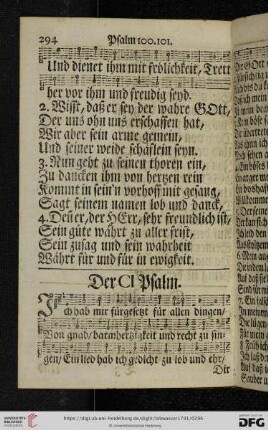 294 Psalm 100.101.
Und dienet ihm mit frölichkeit, Trett
her vor ihm und freudig seyd.
2. Wißt, daß er sey der wahre GOtt,
Der uns ohn uns erschaffen hat,
Wir aber sein arme gemein,
Und seiner weide schäflein seyn.
3. Nun geht zu seinen thoren ein,
Zu dancken ihm von hertzen rein
Kommt in sein'n vorhoff mit gesang,
Sagt seinem namen lob und danck,
4. Denn er, der HErr, sehr freundlich ist,
Sein güte währt zu aller frist,
Sein zusag und sein wahrheit
Währt für und für in ewigkeit.
Der CI Psalm.
Ich hab mir fürgesetzt für allen dingen/
Von gnad/ barmhertzigkeit und recht zu sin-
gen/ Ein lied hab ich gedicht zu lob und ehr/
Dir
https://digi.ub.uni-heidelberg.de/diglit/lobwasser1791/0296
© Universitätsbibliothek Heidelberg
DFG